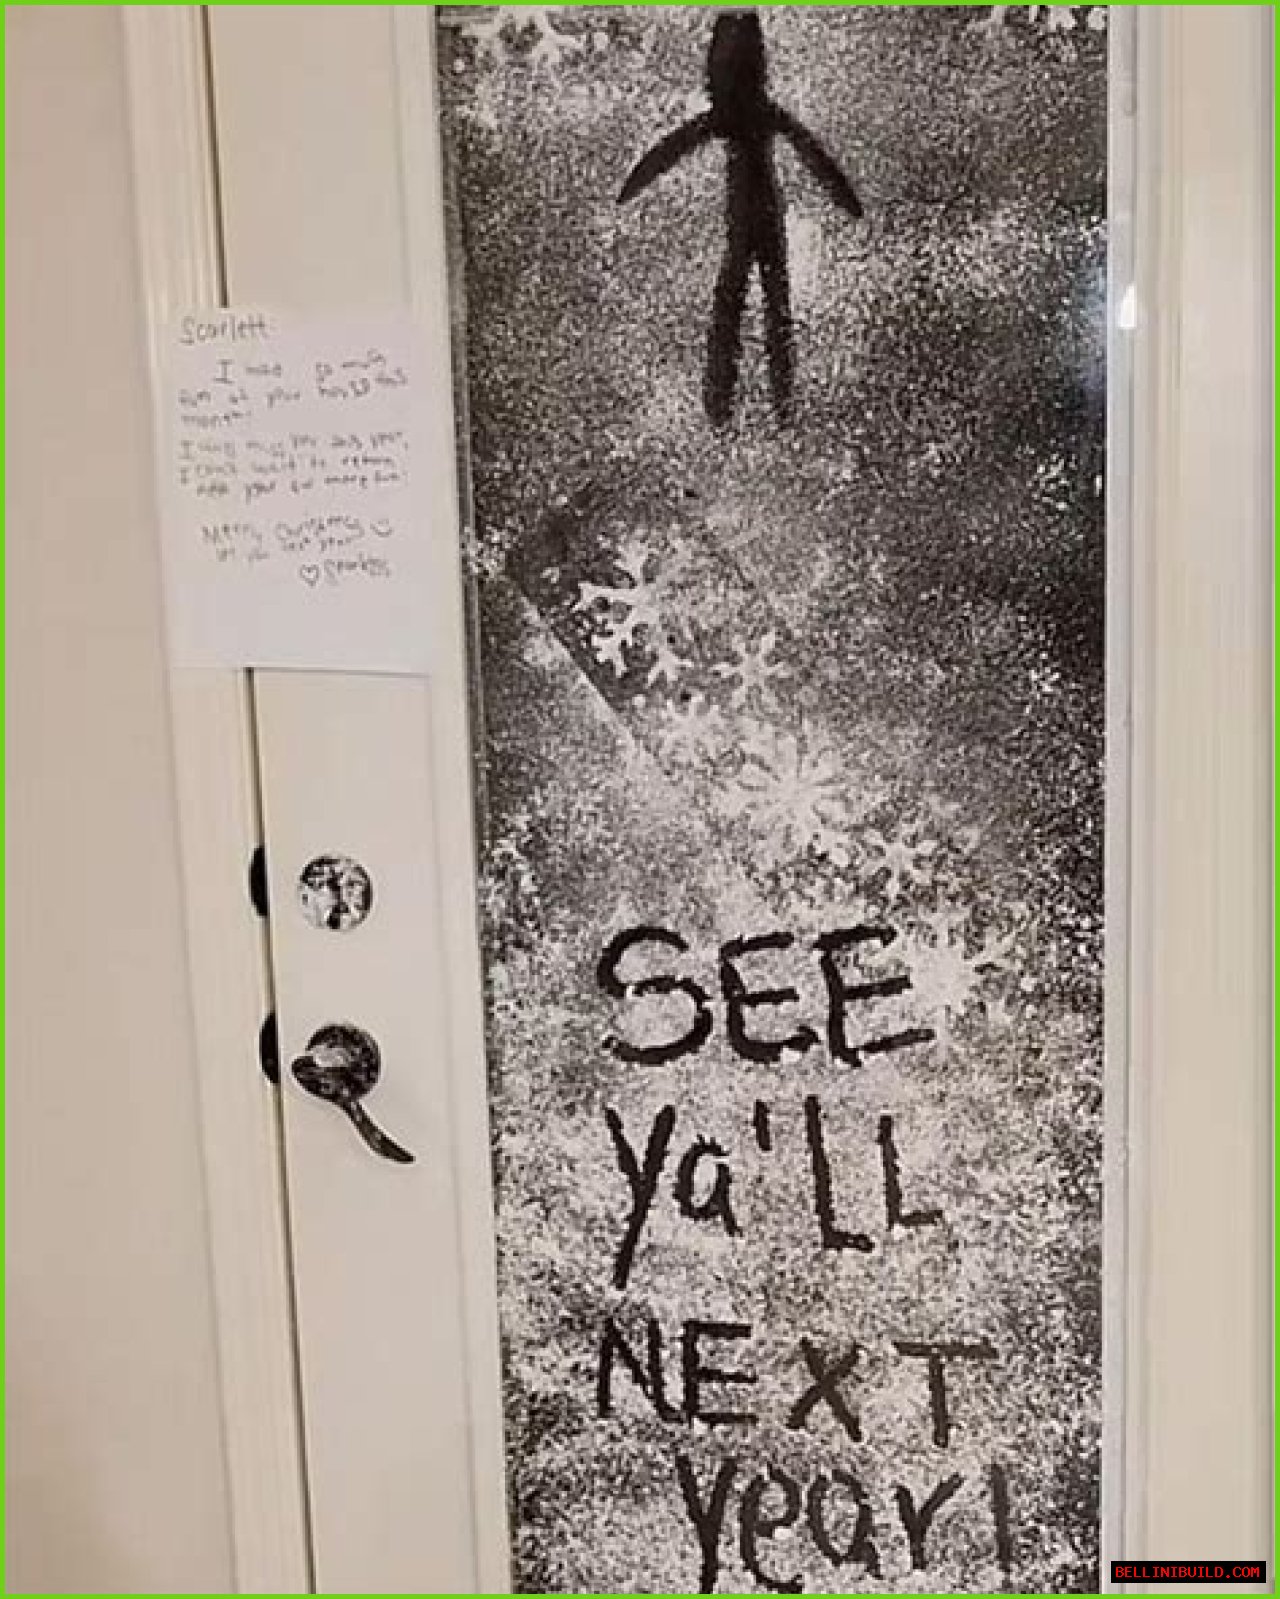 Scarlett
I had so much
fun at your house this
month!
I will miss you this year,
I can't wait to return
next year for more fun!
Merry Christmas
see you next year
♡ Sparkles
SEE
Ya'LL
NEXT
year!
BELLINIBUILD.COM